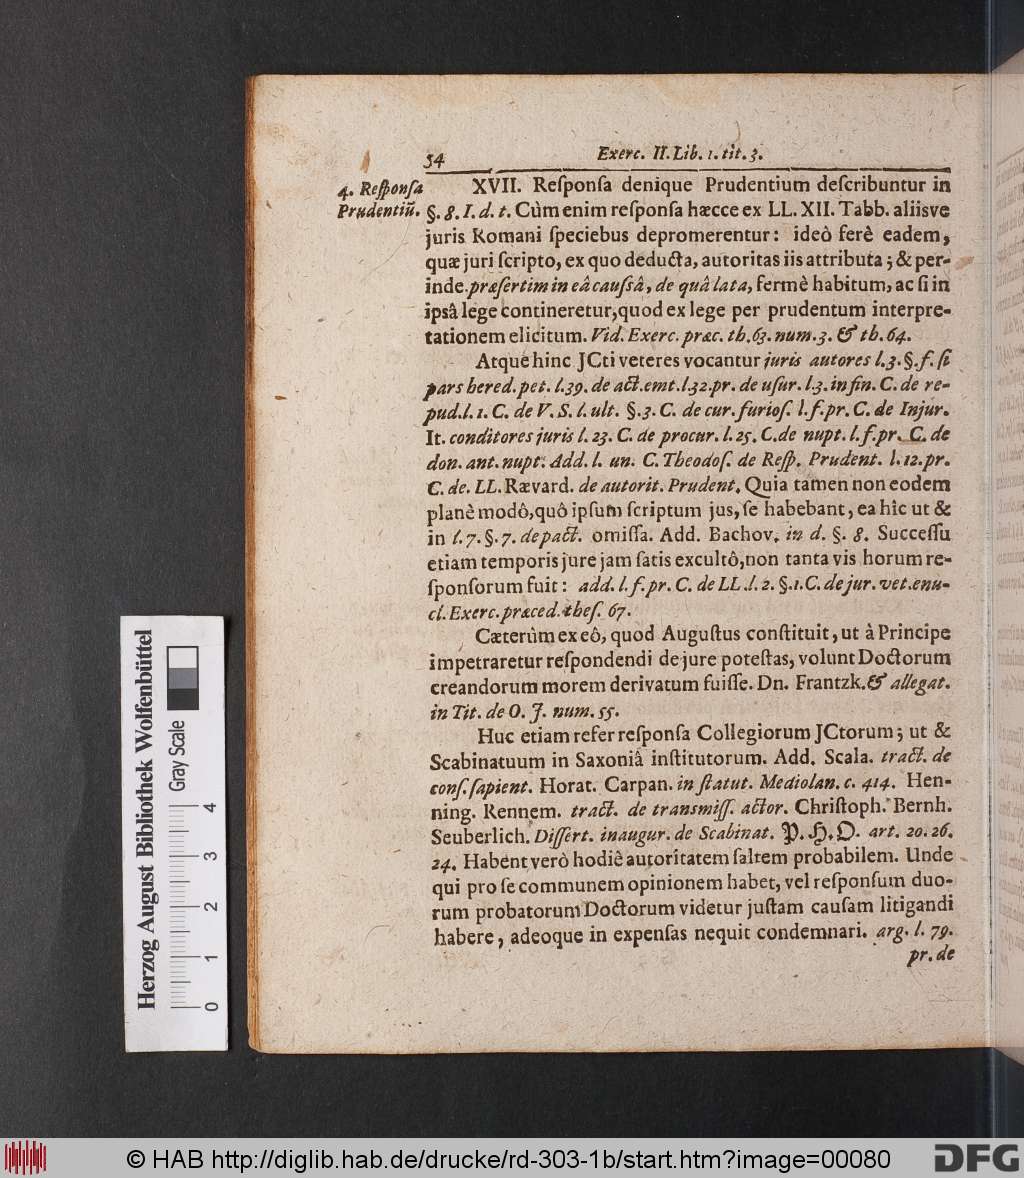 54
Exerc. II. Lib. 1. tit. 3.
4. Reſponſa
Prudentiũ.
XVII. Reſponſa denique Prudentium deſcribuntur in
§. 8. I. d. t. Cùm enim reſponſa hæcce ex LL. XII. Tabb. aliisve
juris Romani ſpeciebus depromerentur: ideô ferè eadem,
quæ juri ſcripto, ex quo deducta, autoritas iis attributa; & per-
inde. præſertim in eâ cauſsâ, de quâ lata, fermè habitum, ac ſi in
ipsâ lege contineretur, quod ex lege per prudentum interpre-
tationem elicitum. Vid. Exerc. præc. th. 63. num. 3. & th. 64.
Atque hinc JCti veteres vocantur juris autores l. 3. §. f. ſi
pars hered. pet. l. 39. de act. emt. l. 32. pr. de uſur. l. 3. in fin. C. de re-
pud. l. 1. C. de V. S. l. ult. §. 3. C. de cur. furioſ. l. f. pr. C. de Injur.
It. conditores juris l. 23. C. de procur. l. 25. C. de nupt. l. f. pr. C. de
don. ant. nupt. Add. l. un. C. Theodoſ. de Reſp. Prudent. l. 12. pr.
C. de. LL. Rævard. de autorit. Prudent. Quia tamen non eodem
planè modô, quô ipſum ſcriptum jus, ſe habebant, ea hîc ut &
in l. 7. §. 7. de pact. omiſſa. Add. Bachov. in d. §. 8. Succeſſu
etiam temporis jure jam ſatis excultô, non tanta vis horum re-
ſponſorum fuit: add. l. f. pr. C. de LL. l. 2. §. 1. C. de jur. vet. enu-
cl. Exerc. præced. theſ. 67.
Cæterùm ex eô, quod Auguſtus conſtituit, ut à Principe
impetraretur reſpondendi de jure poteſtas, volunt Doctorum
creandorum morem derivatum fuiſſe. Dn. Frantzk. & allegat.
in Tit. de O. J. num. 55.
Huc etiam refer reſponſa Collegiorum JCtorum; ut &
Scabinatuum in Saxoniâ inſtitutorum. Add. Scala. tract. de
conſ. ſapient. Horat. Carpan. in ſtatut. Mediolan. c. 414. Hen-
ning. Rennem. tract. de transmiſſ. actor. Chriſtoph. Bernh.
Seuberlich. Diſſert. inaugur. de Scabinat. P. H. O. art. 20. 26.
24. Habent verò hodiè autoritatem ſaltem probabilem. Unde
qui pro ſe communem opinionem habet, vel reſponſum duo-
rum probatorum Doctorum videtur juſtam cauſam litigandi
habere, adeoque in expenſas nequit condemnari. arg. l. 79.
pr. de
Herzog August Bibliothek Wolfenbüttel
Gray Scale
0 1 2 3 4
© HAB http://diglib.hab.de/drucke/rd-303-1b/start.htm?image=00080
DFG